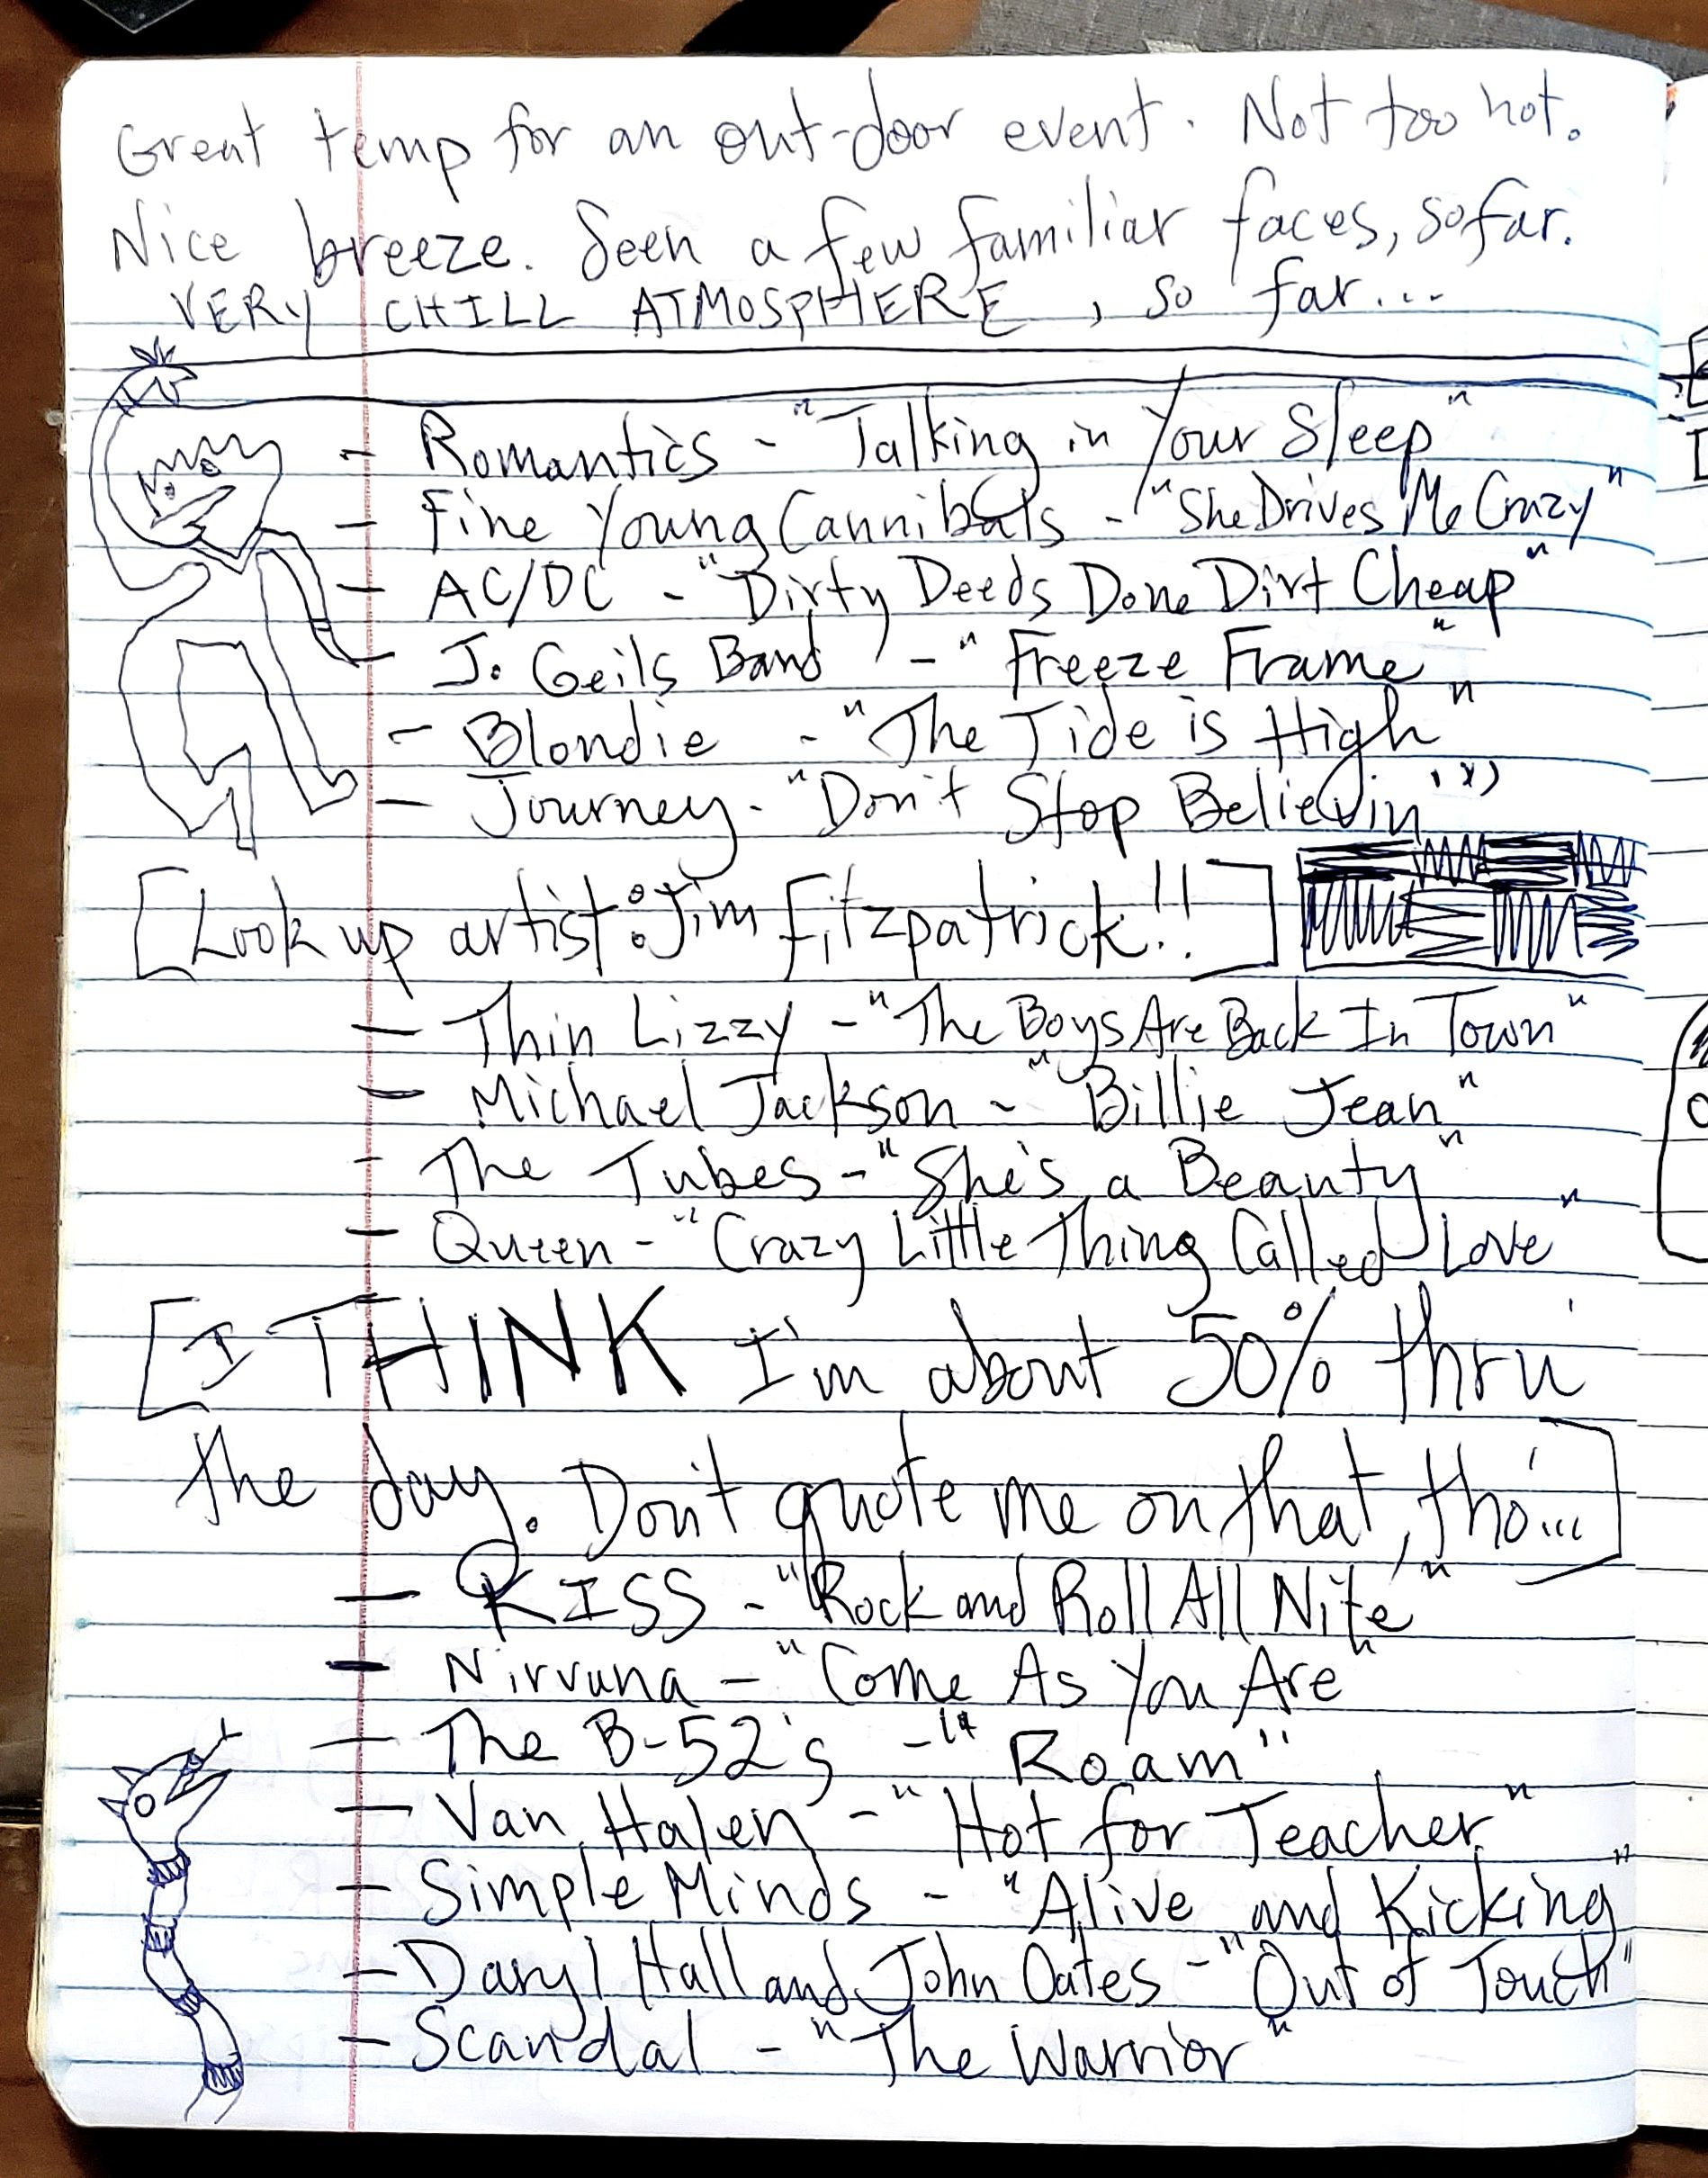 Great temp for an out-door event. Not too hot.
Nice breeze. Seen a few familiar faces, so far.
VERY CHILL ATMOSPHERE, so far...
- Romantics - "Talking in Your Sleep"
- Fine Young Cannibals - "She Drives Me Crazy"
- AC/DC - "Dirty Deeds Done Dirt Cheap"
- J. Geils Band - "Freeze Frame"
- Blondie - "The Tide is High"
- Journey - "Don't Stop Believin'"
[Look up artist: Jim Fitzpatrick!!]
- Thin Lizzy - "The Boys Are Back In Town"
- Michael Jackson - "Billie Jean"
- The Tubes - "She's a Beauty"
- Queen - "Crazy Little Thing Called Love"
[I THINK I'm about 50% thru
the day. Don't quote me on that, tho'...]
- KISS - "Rock and Roll All Nite"
- Nirvana - "Come As You Are"
- The B-52's - "Roam"
- Van Halen - "Hot for Teacher"
- Simple Minds - "Alive and Kicking"
- Daryl Hall and John Oates - "Out of Touch"
- Scandal - "The Warrior"